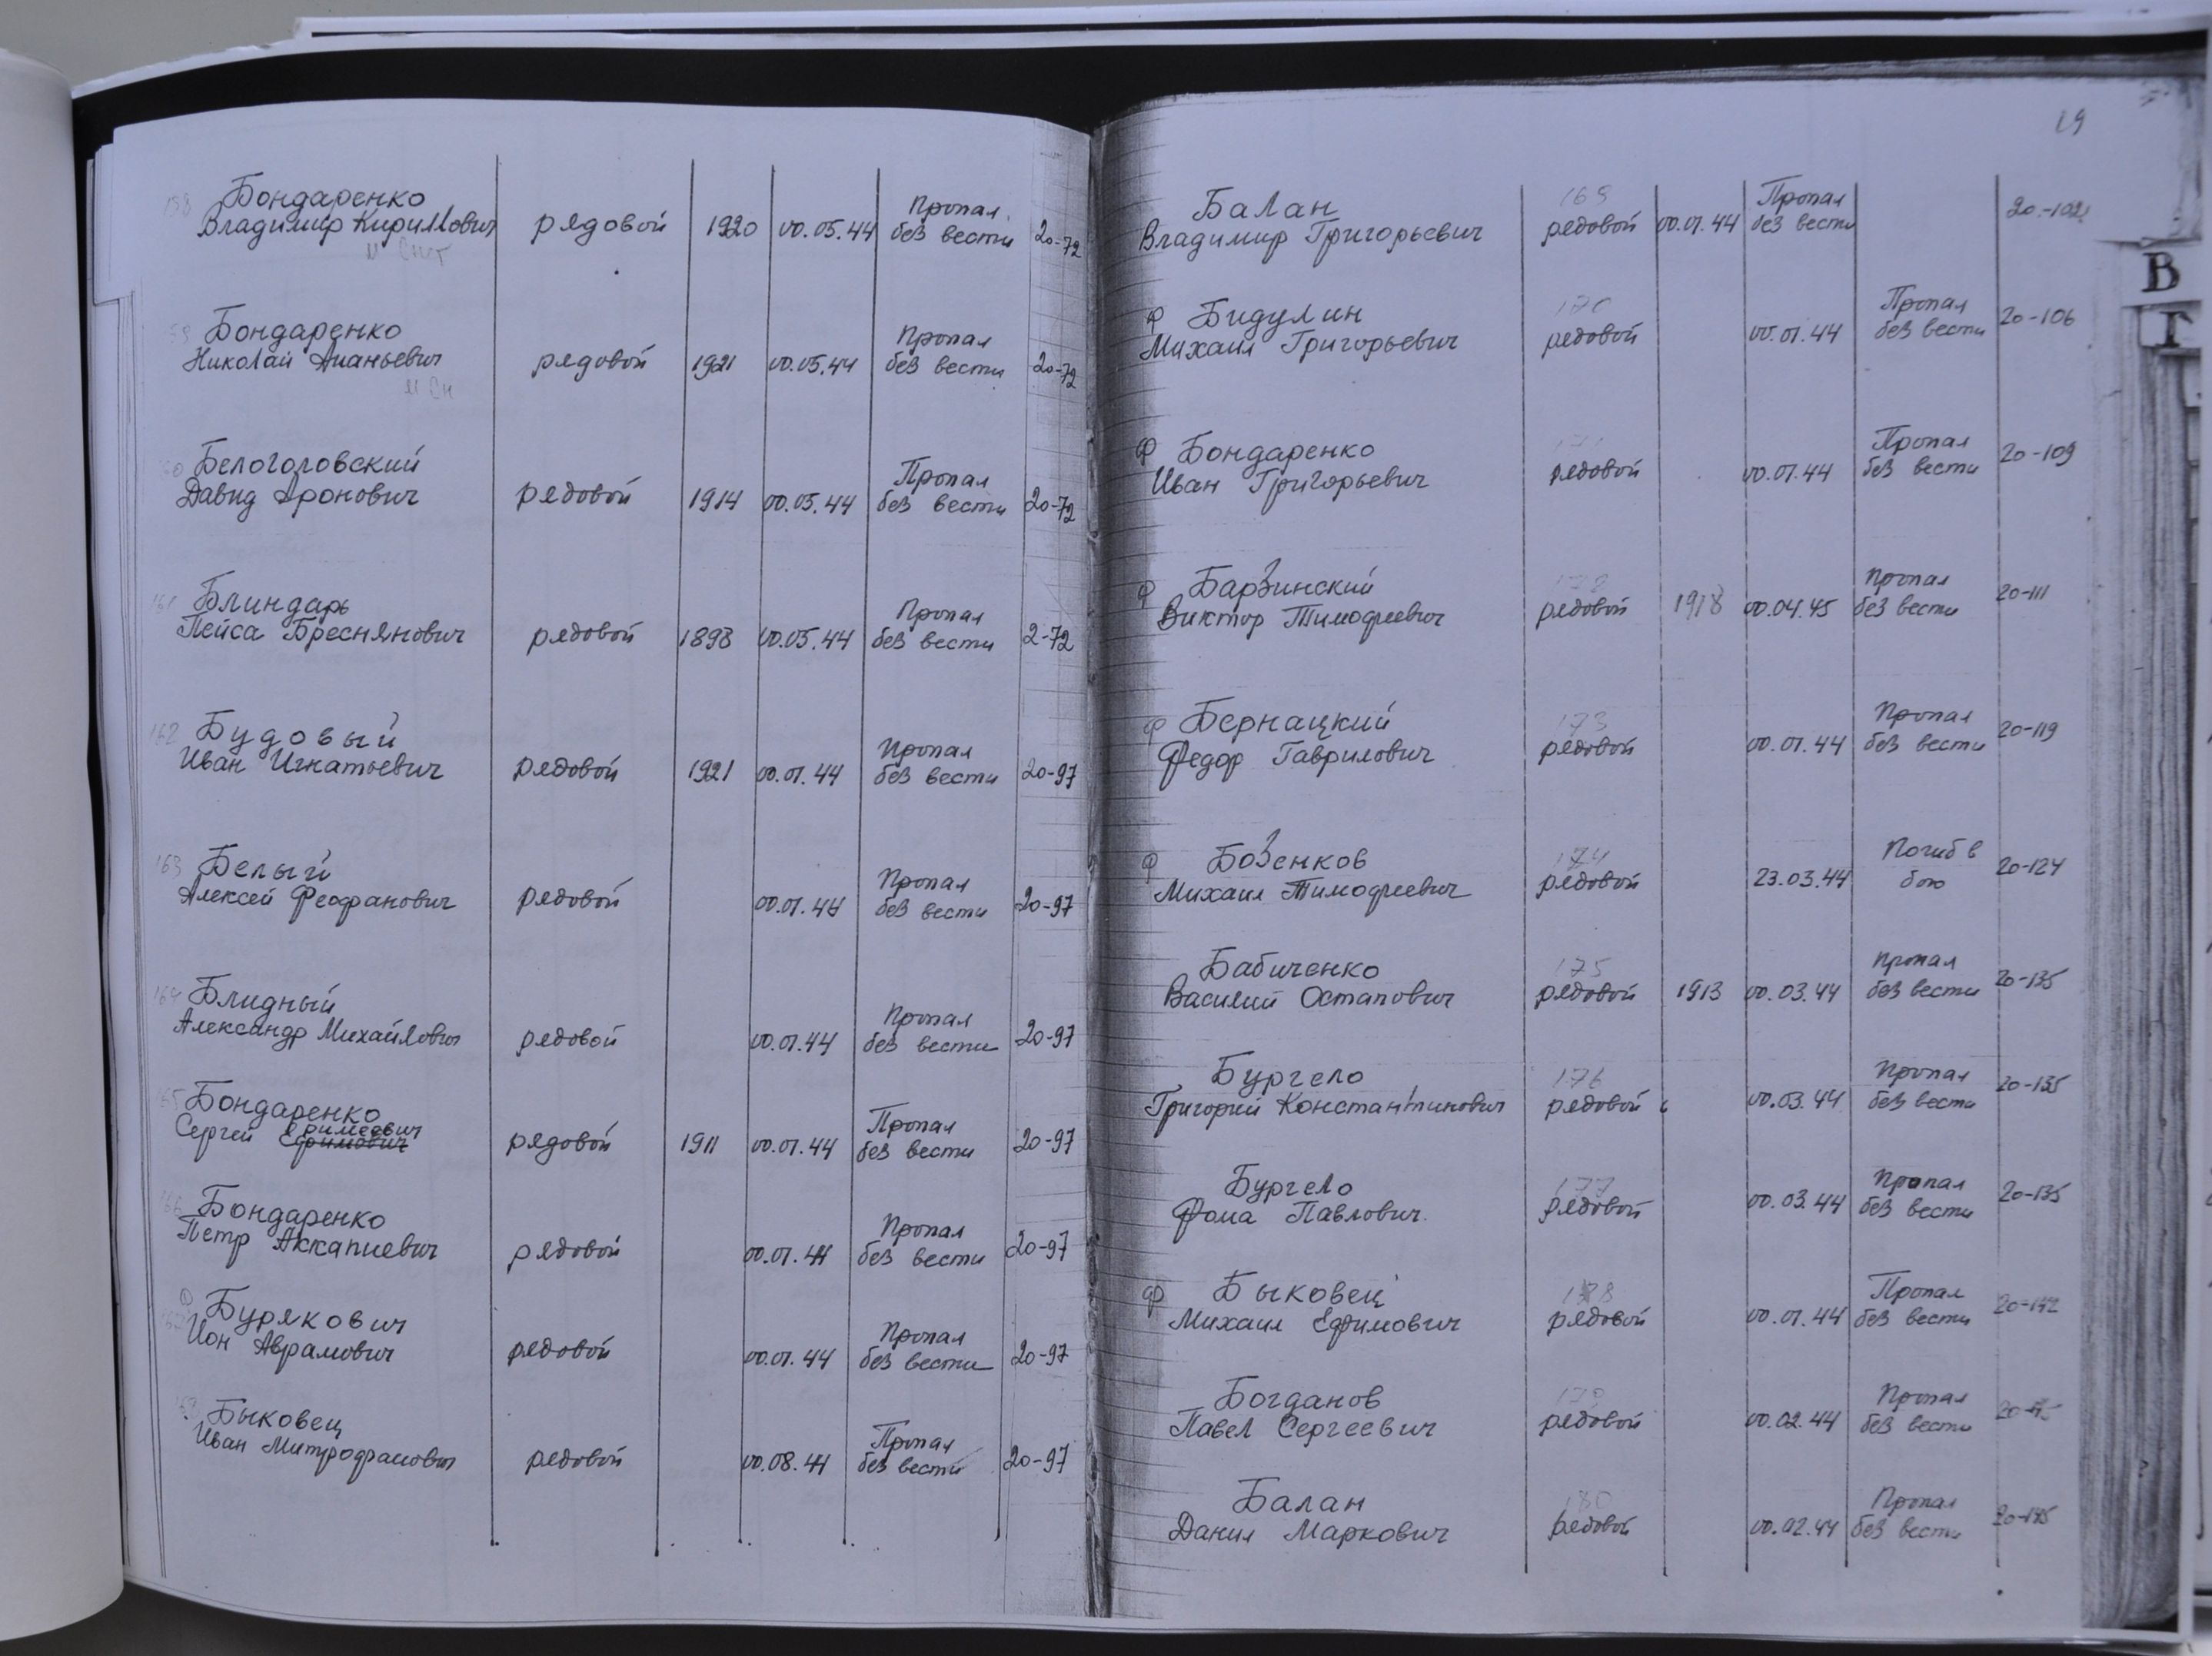 Бондаренко
Владимир Кириллович рядовой 1920 00.05.44 Пропал без вести 20-72
Бондаренко
Николай Ананьевич рядовой 1921 00.05.44 Пропал без вести 20-72
Белоголовский
Давид Аронович рядовой 1914 00.05.44 Пропал без вести 20-72
161 Блиндарь
Пейса Бреснянович рядовой 1898 00.05.44 Пропал без вести 2-72
162 Будовый
Иван Игнатьевич рядовой 1921 00.01.44 Пропал без вести 20-97
163 Белый
Алексей Феофанович рядовой 00.01.44 Пропал без вести 20-97
164 Блидный
Александр Михайлович рядовой 00.01.44 Пропал без вести 20-97
Бондаренко
Еримеевич
Сергей Ефимович рядовой 1911 00.01.44 Пропал без вести 20-97
Бондаренко
Петр Аккапиевич рядовой 00.01.44 Пропал без вести 20-97
Ф Бурякович
Ион Аврамович рядовой 00.01.44 Пропал без вести 20-97
Быковец
Иван Митрофанович рядовой 00.08.44 Пропал без вести 20-97
19
Балан 169
Владимир Григорьевич рядовой 00.01.44 Пропал без вести 20-102
Ф Бидулин 170
Михаил Григорьевич рядовой 00.01.44 Пропал без вести 20-106
Ф Бондаренко
Иван Григорьевич рядовой 00.01.44 Пропал без вести 20-109
Ф Барзинский 172
Виктор Тимофеевич рядовой 1918 00.04.45 Пропал без вести 20-111
Ф Бернацкий 173
Федор Гаврилович рядовой 00.01.44 Пропал без вести 20-119
Ф Бозенков 174
Михаил Тимофеевич рядовой 23.03.44 Погиб в бою 20-124
Бабиченко 175
Василий Остапович рядовой 1913 00.03.44 Пропал без вести 20-135
Бургело 176
Григорий Константинович рядовой 00.03.44 Пропал без вести 20-135
Бургело 177
Фома Павлович рядовой 00.03.44 Пропал без вести 20-135
Ф Быковец 178
Михаил Ефимович рядовой 00.01.44 Пропал без вести 20-142
Богданов 179
Павел Сергеевич рядовой 00.02.44 Пропал без вести
Балан 180
Данил Маркович рядовой 00.02.44 Пропал без вести 20-145
В
Г